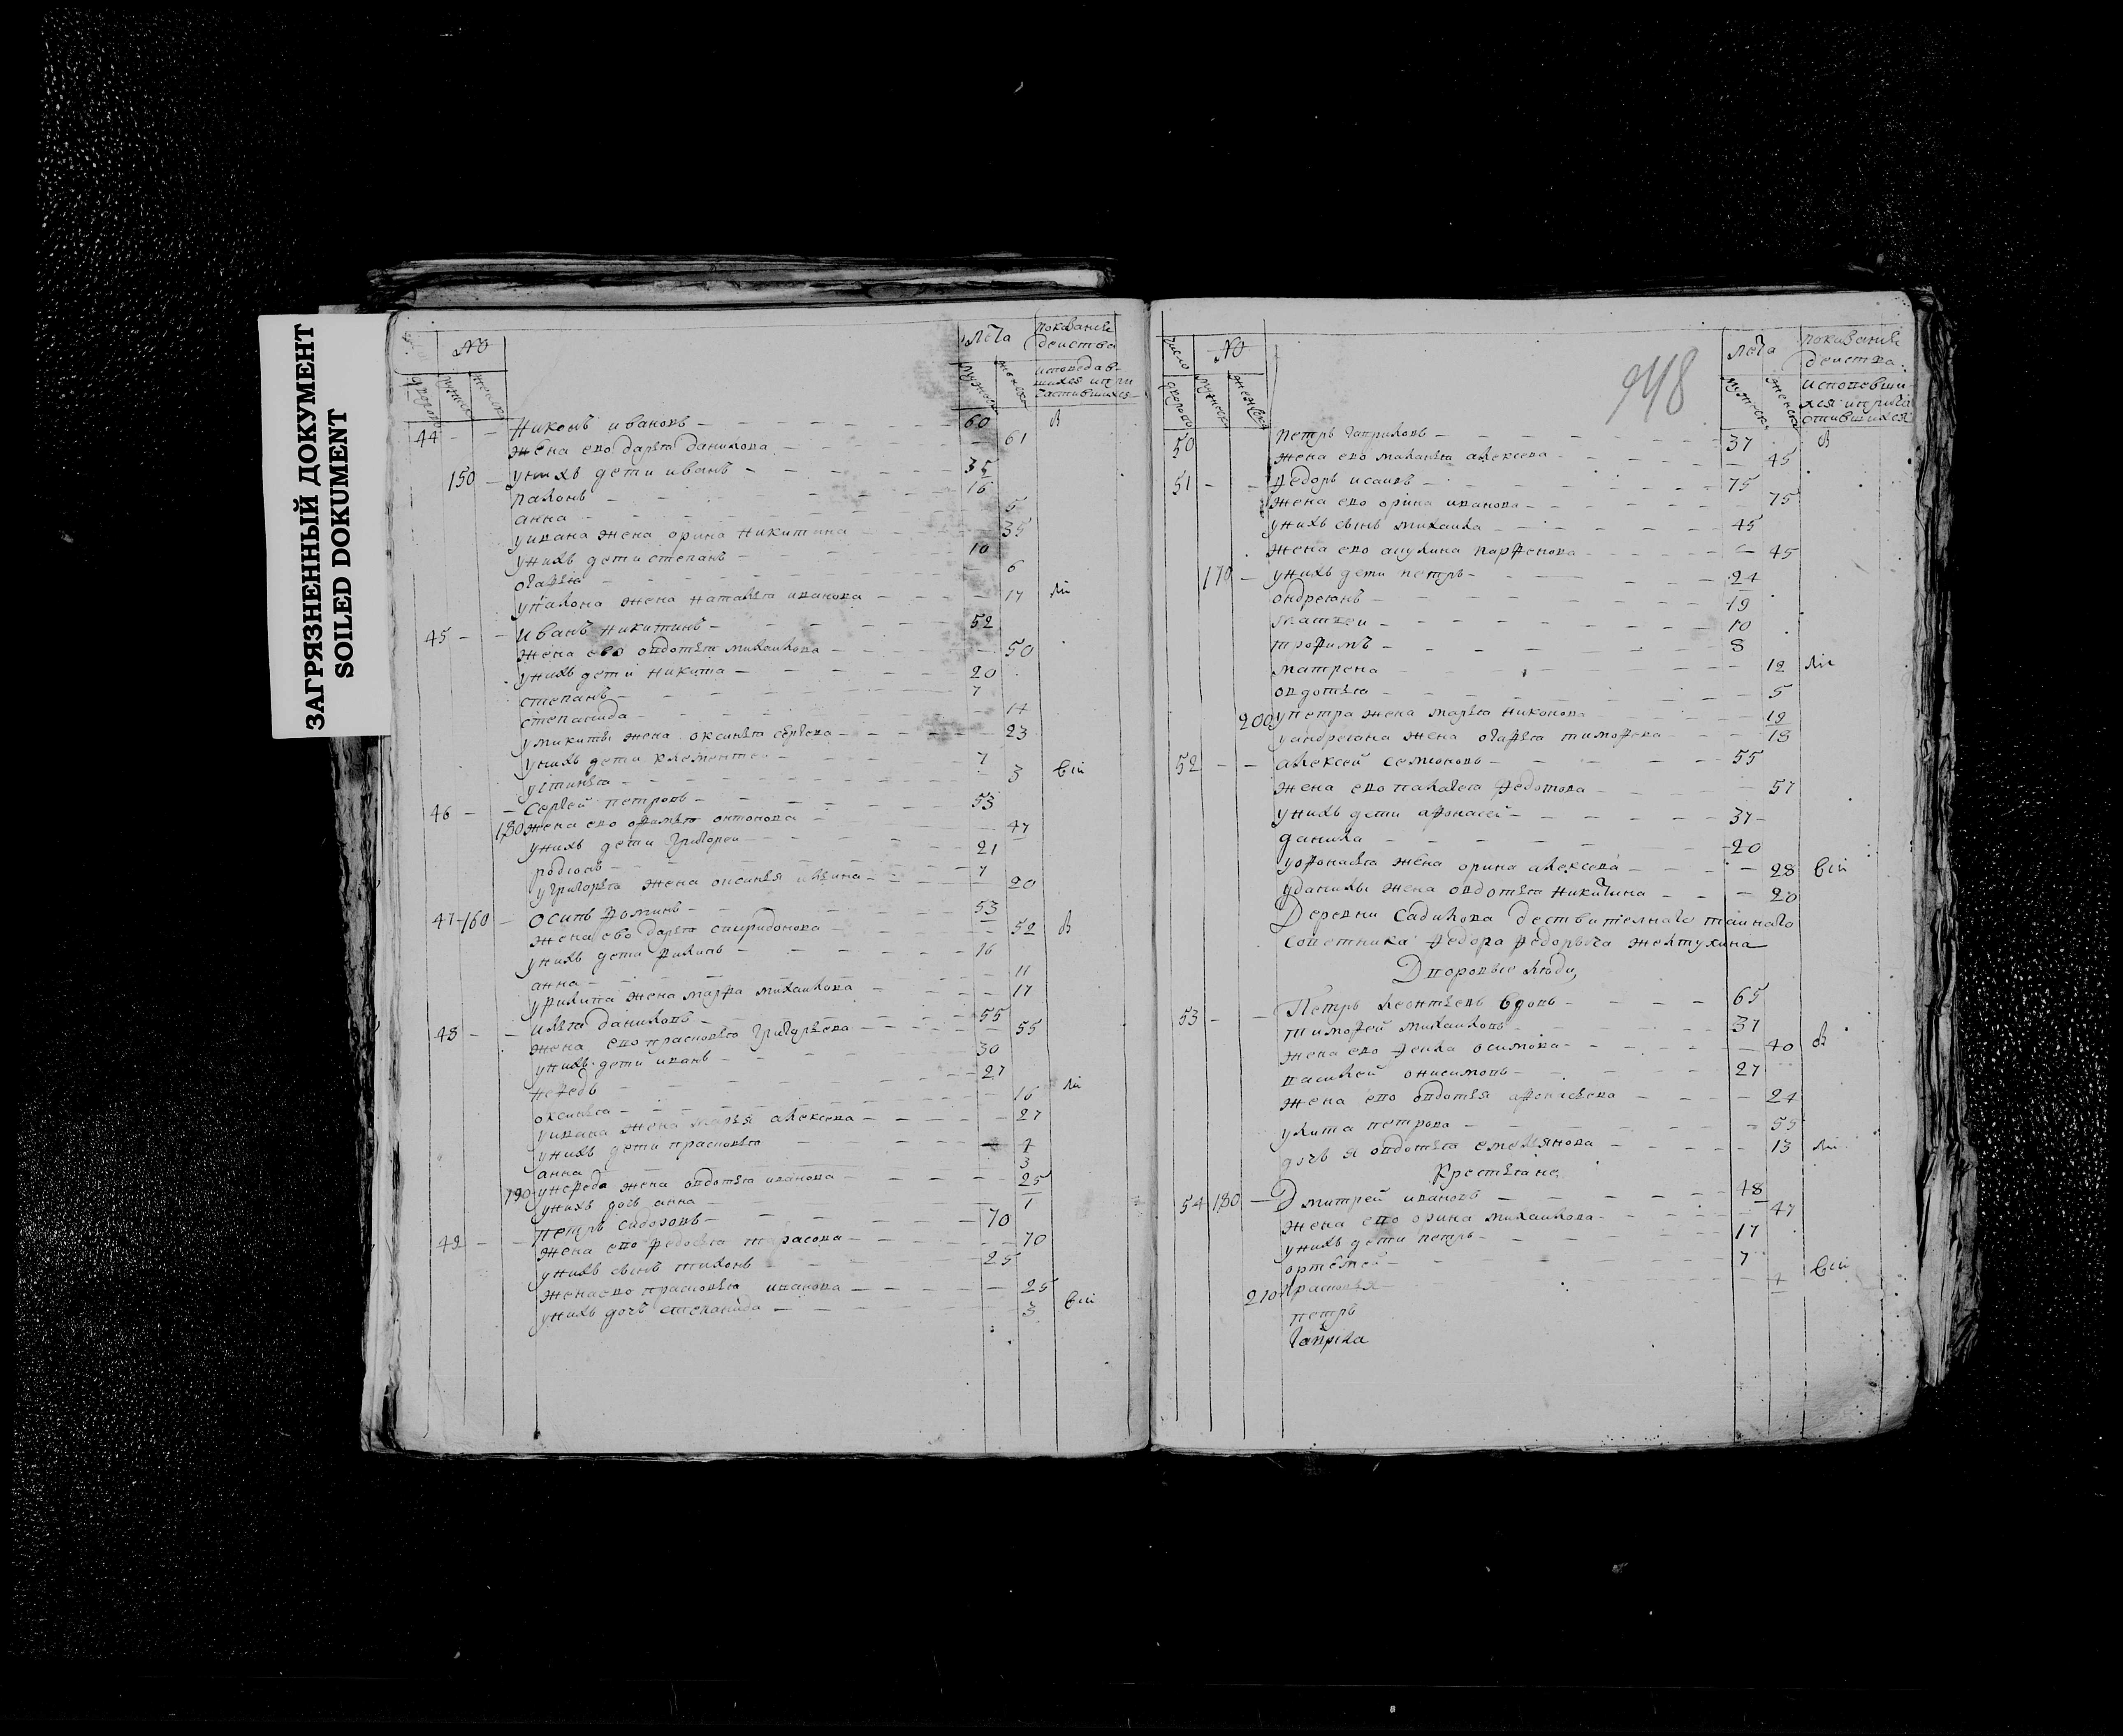 ЗАГРЯЗНЕННЫЙ ДОКУМЕНТ
SOILED DOKUMENT
№ лета показание
действа
дворовъ мужеска женска мужеска женска исповедав-
шихся и при
частившихся
44 Никонъ ивановъ 60 В
жена ево дарья данилова 61
150 у нихъ дети иванъ 35
палонъ 16
анна 5
у ивана жена орина никитина 35
у нихъ дети степанъ 10
огафья 6
у палона жена наталья иванова 17
45 иванъ никитинъ 52
жена ево овдотья михаилова 50
у нихъ дети никита 20
степанъ 7
степанида 14
у микиты жена оксинья сергева 23
у нихъ дети клементей 7
устинья 3
46 Сергей петровъ 53
180 жена ево офимья онтонова 47
у нихъ дети григорей 21
родионъ 7
у григорья жена оксинья ильина 20
47 160 осипъ фоминъ 53
жена ево дарья спиридонова 52 В
у нихъ дети филипъ 16
анна 11
у филипа жена марфа михаилова 17
48 илья даниловъ 55
жена ево прасковья григорьева 55
у нихъ дети иванъ 30
нефедъ 27
оксинья 16
у ивана жена марья алексева 27
у нихъ дети прасковья 4
анна 3
190 у нефеда жена овдотья иванова 25
у нихъ дочь анна 1
49 петръ сидоровъ 70
жена ево федосья тарасова 70
у нихъ сынъ тихонъ 25
жена ево прасковья иванова 25
у нихъ дочь степанида 3
948
число № лета показание
действа
дворовъ мужеска женска мужеска женска исповевши
хся и прича
стившихся
50 петръ гавриловъ 37 В
жена ево маланья алексева 45
51 федоръ исаивъ 75
жена ево орина иванова 75
у нихъ сынъ михаила 45
жена ево акулина парфенова 45
170 у нихъ дети петръ 24
ондреянъ 19
матвеи 10
трофимъ 8
матрена 12
овдотья 5
200 у петра жена марья никонова 19
у андреяна жена огафья тимофева 18
52 алексей семионовъ 55
жена ево палагея федотова 57
у нихъ дети афонасей 37
данила 20
у офонасья жена орина алексева 28
у данилы жена овдотья никитина 20
Деревни Садикова действителнаго таинаго
советника федора федорыча желтухина
Дворовые люди
53 Петръ леонтьевъ вдовъ 65
тимофей михаиловъ 37
жена ево фекла осипова 40 В
василей онисимовъ 27
жена ево овдотья афонасьева 24
улита петрова 55
дочь я овдотья емельянова 13
Крестьяне
54 180 Дмитрей ивановъ 48
жена ево орина михаилова 47
у нихъ дети петръ 17
ортемей 7
210 прасковья 4
петръ
гаврила